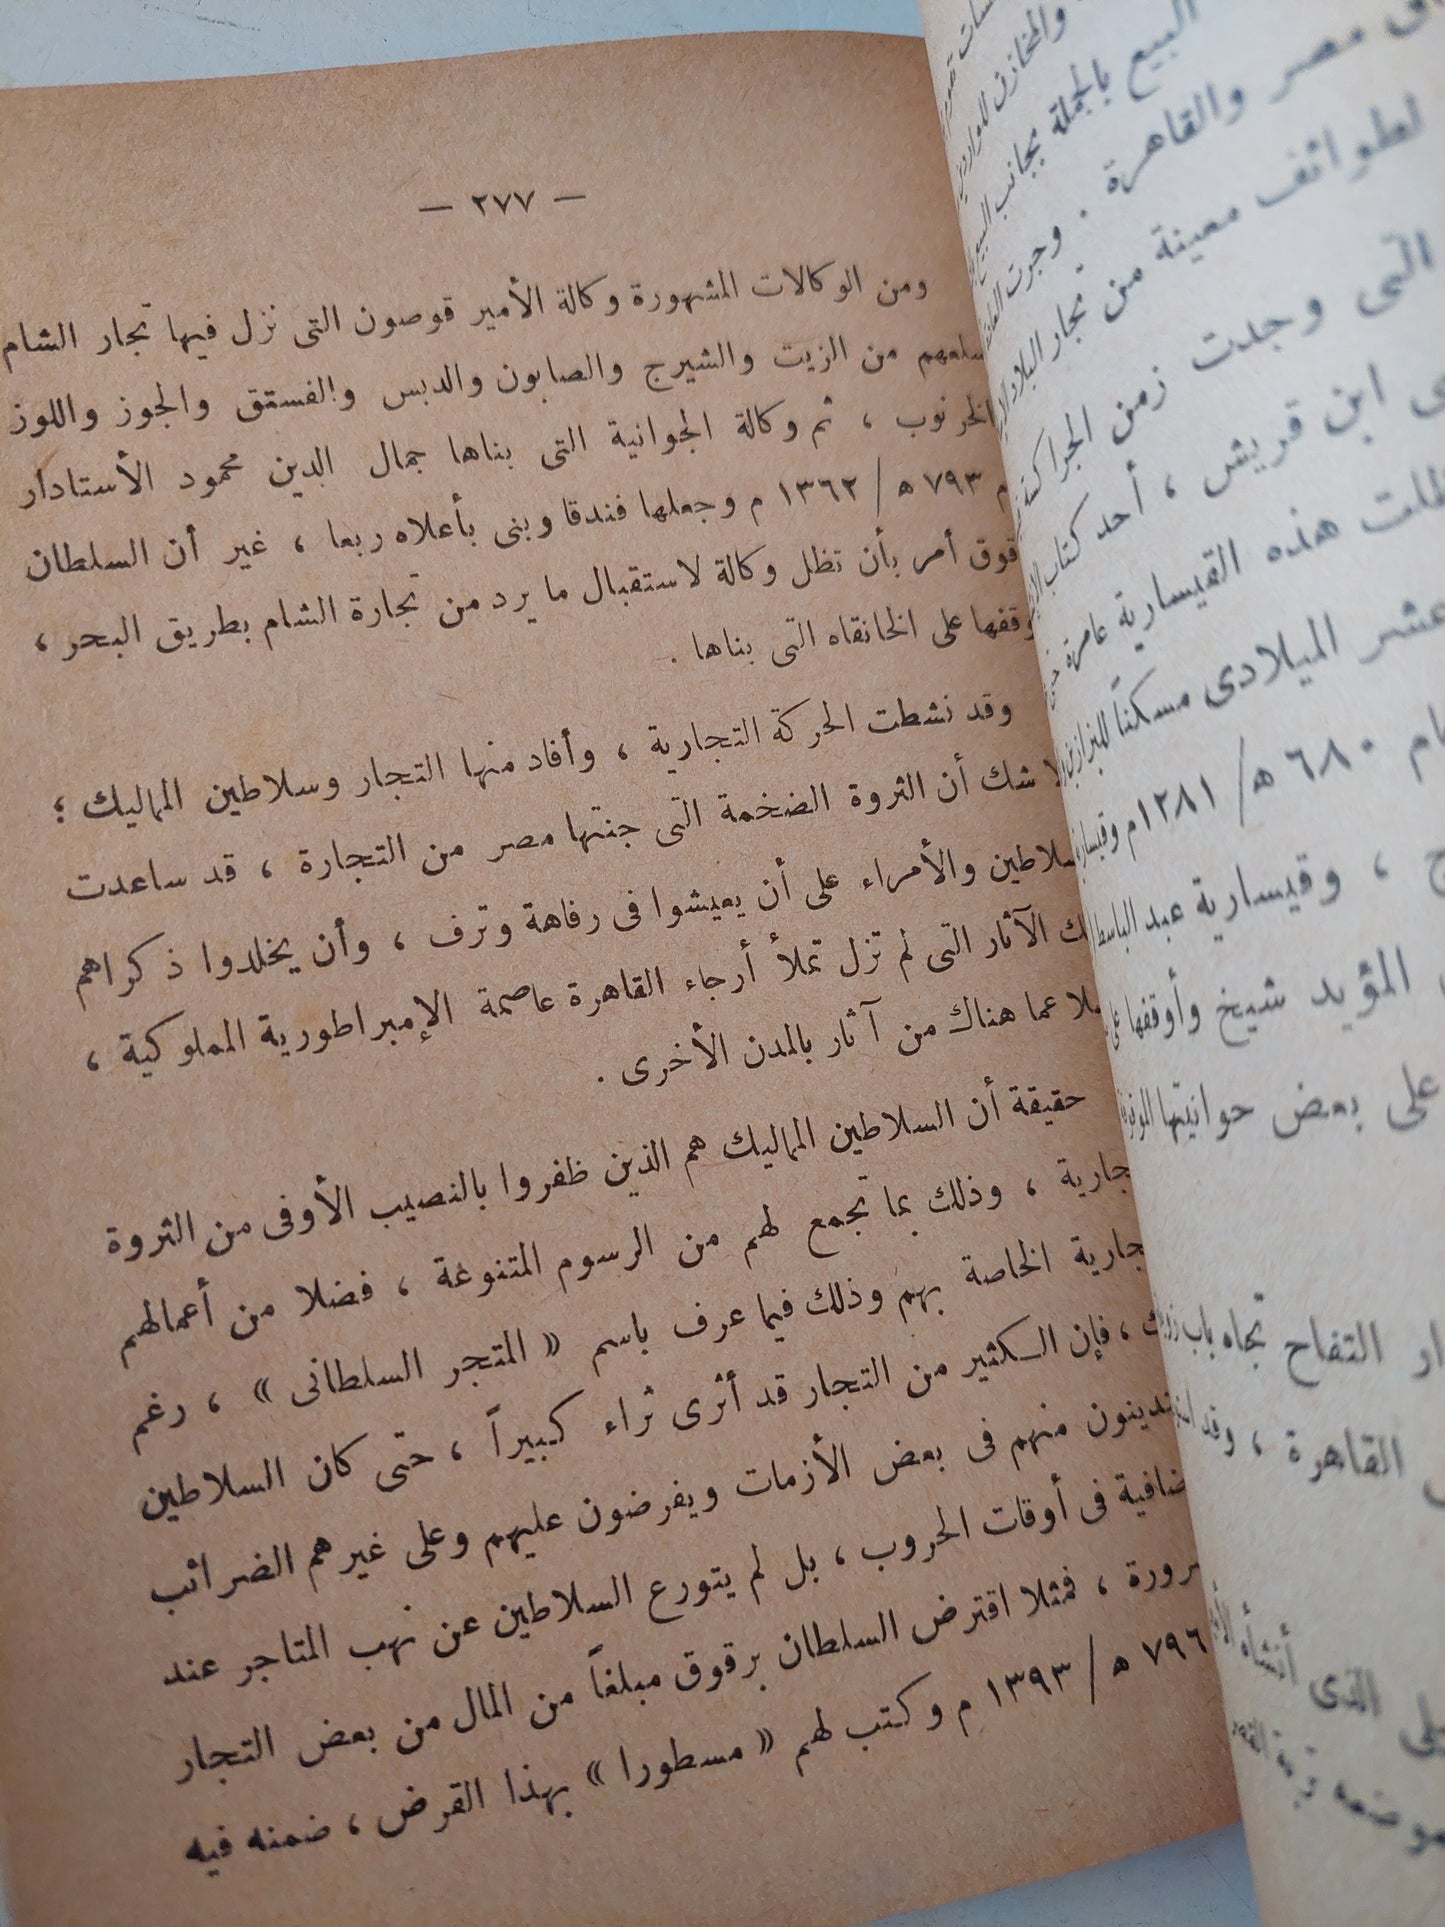 — ٢٧٧ —
ومن الوكالات المشهورة وكالة الأمير قوصون التى نزل فيها تجار الشام
من الزيت والشيرج والصابون والدبس والفستق والجوز واللوز
الخرنوب ، ثم وكالة الجوانية التى بناها جمال الدين محمود الأستادار
٧٩٣ ه / ١٣٦٢ م وجعلها فندقا وبنى بأعلاه ربعا ، غير أن السلطان
قوق أمر بأن تظل وكالة لاستقبال ما يرد من تجارة الشام بطريق البحر ،
وقفها على الخانقاه التى بناها .
وقد نشطت الحركة التجارية ، وأفاد منها التجار وسلاطين المماليك ؛
لا شك أن الثروة الضخمة التى جنتها مصر من التجارة ، قد ساعدت
سلاطين والأمراء على أن يعيشوا فى رفاهة وترف ، وأن يخلدوا ذكراهم
لك الآثار التى لم تزل تملأ أرجاء القاهرة عاصمة الإمبراطورية المملوكية ،
لا عما هناك من آثار بالمدن الأخرى .
حقيقة أن السلاطين المماليك هم الذين ظفروا بالنصيب الأوفى من الثروة
جارية ، وذلك بما تجمع لهم من الرسوم المتنوعة ، فضلا من أعمالهم
جارية الخاصة بهم وذلك فيما عرف باسم « المتجر السلطانى » ، رغم
ك ، فإن الكثير من التجار قد أثرى ثراء كبيراً ، حتى كان السلاطين
تدينون منهم فى بعض الأزمات ويفرضون عليهم وعلى غيرهم الضرائب
ضافية فى أوقات الحروب ، بل لم يتورع السلاطين عن نهب المتاجر عند
رورة ، فمثلا اقترض السلطان برقوق مبلغاً من المال من بعض التجار
٧٩٦ ه / ١٣٩٣ م وكتب لهم « مسطورا » بهذا القرض ، ضمنه فيه
البيع بالجملة بجانب البيع
مصر والقاهرة . وجرت
لطوائف معينة من تجار البلاد
التى وجدت زمن الجراكسة
ابن قريش ، أحد كتاب
ظلت هذه القيسارية عامرة
عشر الميلادى مسكناً للبزازين
ام ٦٨٠ ه / ١٢٨١ م
ج ، وقيسارية عبد الباسط
المؤيد شيخ وأوقفها
على بعض حوانيتها
ار التفاح تجاه باب
القاهرة ، وقد
لى الذى أنشأه
موضعه